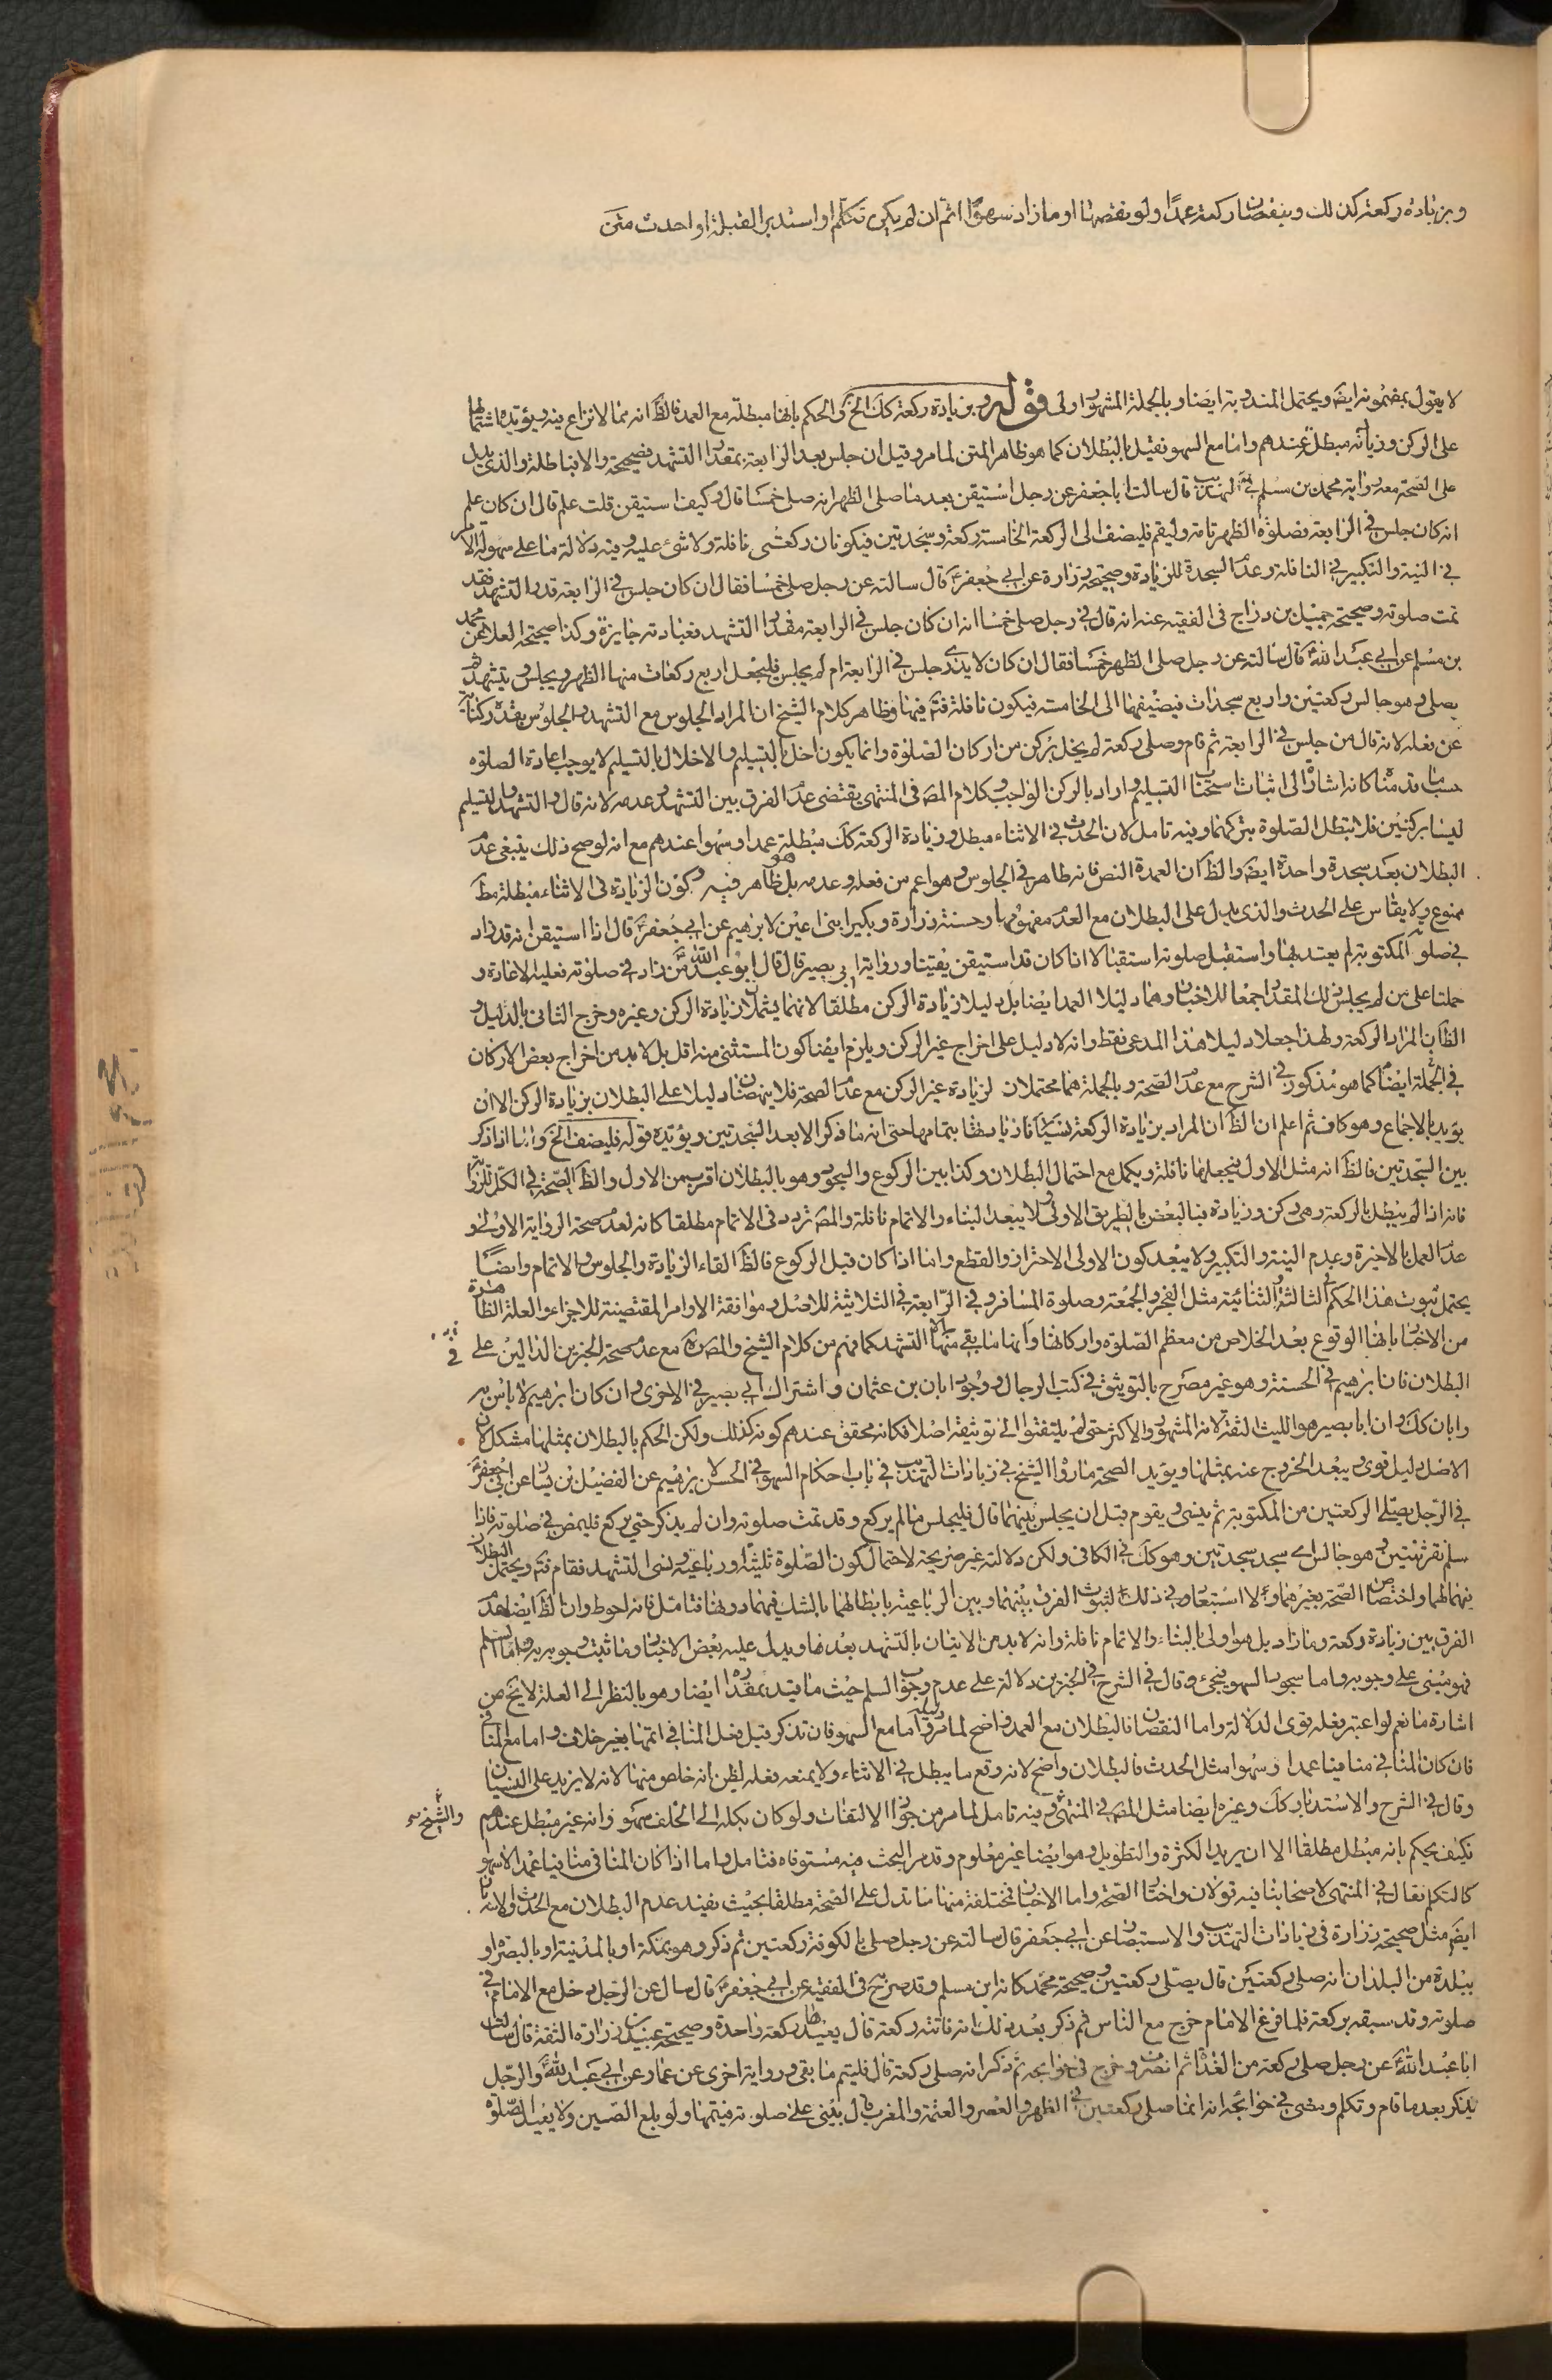 وبزيادة ركعة كذلك وبنقصان ركعة عمدًا ولو نقصها او ما زاد سهوًا اتم ان لم يكن تكلم او استدبر القبلة او احدث متى
لا يقول بمضمونه ايضَ ويحتمل المندوبة ايضا وبالجملة المشهور اولى قوله وبزيادة ركعة كك الخ كان الحكم بانها مبطلة مع العمد فالظَ انه مما لا نزاع فيه ويؤيده اشتمالها
على الركن وزيادته مبطلة عندهم واما مع السهو فقيل بالبطلان كما هو ظاهر المتن لما مر وقيل ان جلس بعد الرابعة بمقدار التشهد فصحيحة والا فباطلة والذى يدل
على الصحة معه رواية محمد بن مسلم في التهذيب قال سالت ابا جعفر عن رجل استيقن بعد ما صلى الظهر انه صلى خمسا قال وكيف استيقن قلت علم قال ان كان علم
انه كان جلس في الرابعة فصلوة الظهر تامة وليقم فليضف الى الركعة الخامسة ركعة وسجدتين فيكونان ركعتى نافلة ولا شئ عليه وفيه دلالة ما على سهولة الامر
في النية والتكبير في النافلة وعدم السجدة للزيادة وصحيحة زرارة عن ابي جعفر قال سالته عن رجل صلى خمسا فقال ان كان جلس في الرابعة قدر التشهد فقد
تمت صلوته وصحيحة جميل بن دراج فى الفقيه عنه انه قال في رجل صلى خمسا انه ان كان جلس في الرابعة مقدار التشهد فعبادته جايزة وكذا صحيحة العلا عن محمد
بن مسلم عن ابي عبد الله قال سالته عن رجل صلى الظهر خمسا فقال ان كان لا يدرى جلس في الرابعة ام لم يجلس فليجعل اربع ركعات منها الظهر ويجلس ويتشهد ثم
يصلى وهو جالس ركعتين واربع سجدات فيضيفها الى الخامسة فيكون نافلة فتَم فيها وظاهر كلام الشيخ ان المراد الجلوس مع التشهد والجلوس بقدره كناية
عن فعله لانه قال من جلس في الرابعة ثم قام وصلى ركعة لم يخل بركن من اركان الصلوة وانما يكون اخل بالتسليم والاخلال بالتسليم لا يوجب اعادة الصلوة
حسب ما قدمناه كانه اشارة الى اثبات استحباب التسليم واراد بالركن الواجب وكلام المصَ فى المنتهى يقتضى عدم الفرق بين التشهد وعدمه لانه قال والتشهد والتسليم
ليسا بركنين فلا تبطل الصلوة بتركهما وفيه تامل لان الحدث في الاثناء مبطل وزيادة الركعة كك مبطلة عمدا وسهوا عندهم مع انه لو صح ذلك ينبغى عدم
البطلان بعد سجدة واحدة ايضَ والظَ ان العمدة النص فانه ظاهر في الجلوس وهو اعم من فعله وعدمه بل هو ظاهر فيه وكون الزيادة فى الاثناء مبطلة مطَ
ممنوع ولا يقاس على الحدث والذى يدل على البطلان مع العدم مفهومها وحسنة زرارة وبكير ابنى اعين لابرهيم عن ابي جعفر قال اذا استيقن انه قد زاد
في صلوته المكتوبة لم يعتد بها واستقبل صلوته استقبالا اذا كان قد استيقن يقينا ورواية ابي بصير قال قال ابو عبد الله من زاد في صلوته فعليه الاعادة و
حملتا على من لم يجلس ذلك المقدار جمعا للاخبار وهما دليلا العمد ايضا بل دليلا زيادة الركن مطلقا لانهما يشملان زيادة الركن وغيره وخرج الثانى بالدليل و
الظَ ان المراد الركعة ولهذا جعلا دليلا هذا المدعى فقط وانه لا دليل على اخراج غير الركن ويلزم ايضا كون المستثنى منه اقل بل لا بد من اخراج بعض الاركان
في الجملة ايضا كما هو مذكور في الشرح مع عدم الصحة وبالجملة هما محتملان لزيادة غير الركن مع عدم الصحة فلا ينهضان دليلا على البطلان بزيادة الركن الا ان
يؤيد بالاجماع وهو كاف ثم اعلم ان الظَ ان المراد بزيادة الركعة نسيانا زيادتها بتمامها حتى انه ما ذكر الا بعد السجدتين ويؤيده قوله فليضف الخ واما اذا ذكر
بين السجدتين فالظَ انه مثل الاول فيجعلها نافلة ويكمل مع احتمال البطلان وكذا بين الركوع والسجود وهو بالبطلان اقرب من الاول والظَ الصحة في الكل
فانه اذا لم يبطل بالركعة وهى ركن وزيادة فبالبعض بالطريق الاولى ولا يبعد البناء والاتمام نافلة والمصَ تردد فى الاتمام مطلقا كانه لعدم صحة الرواية الاولى و
عدم العمل بالاخيرة وعدم النية والتكبير ولا يبعد كون الاولى الاحتراز والقطع واما اذا كان قبل الركوع فالظَ القاء الزيادة والجلوس والاتمام وايضًا
يحتمل ثبوت هذا الحكم في الثالثة والثنائية مثل الفجر والجمعة وصلوة المسافر وفي الرابعة في الثلاثية للاصل وموافقة الاوامر المقتضية للاجزاء والعلة الظاهرة
من الاخبار بانها الوقوع بعد الخلاص من معظم الصلوة واركانها وانها ما بقى منها الا التشهد كما فهم من كلام الشيخ والمصَ مع عدم صحة الخبرين الدالين على
البطلان فان ابرهيم في الحسنة وهو غير مصرح بالتوثيق في كتب الرجال ووجود ابان بن عثمان واشتراك ابي بصير في الاخرى وان كان ابرهيم لا باس به
وابان كك وان ابا بصير هو الليث الثقة لانه المشهور والاكثر حتى لم يلتفتوا الى توثيقه اصلا فكانه محقق عندهم كونه كذلك ولكن الحكم بالبطلان بمثلها مشكل لان
الاصل دليل قوى يبعد الخروج عنه بمثلها ويؤيد الصحة ما رواه الشيخ في زيادات التهذيب في باب احكام السهو في الحسن لابرهيم عن الفضيل بن يسار عن ابي جعفر
في الرجل يصلى الركعتين من المكتوبة ثم ينسى ويقوم قبل ان يجلس بينهما قال فليجلس ما لم يركع وقد تمت صلوته وان لم يذكر حتى يركع فليمض في صلوته فاذا
سلم نقر ثنتين وهو جالس اى سجد سجدتين وهو كك في الكافى ولكن دلالته غير صريحة لاحتمال كون الصلوة ثلثية او رباعية ونسى التشهد فقام فتَم ويحتمل البطلان
فيهما لهما واختصاص الصحة بغيرهما ولا استبعاد في ذلك لثبوت الفرق بينهما وبين الرباعية بابطالهما بالشك فيهما دونها فتامل فانه احوط وان الظَ ايضا عدم
الفرق بين زيادة ركعة وما زاد بل هو اولى بالبناء والاتمام نافلة وانه لا بد من الاتيان بالتشهد بعدها ويدل عليه بعض الاخبار وما ثبت وجوبه واما السلم
فهو مبنى على وجوبه واما سجود السهو فيجئ وقال في الشرح في الخبرين دلالة على عدم وجوب السلم حيث ما قيد بمقداره ايضا وهو بالنظر الى العلة لا يخ من
اشارة ما نعم لو اعتبر فعله قوى الدلالة واما النقصان فالبطلان مع العمد واضح لما مر واما مع السهو فان تذكر قبل فعل المنافى اتمها بغير خلاف واما مع المنافى
فان كان المنافي منافيا عمدا وسهوا مثل الحدث فالبطلان واضح لانه وقع ما يبطل في الاثناء ولا يمنعه فعله لظن انه خلص منها لانه لا يزيد على النسيان
وقال في الشرح والاستدبار كك وغيره ايضا مثل المصَ في المنتهى وفيه تامل لما مر من جواز الالتفات ولو كان بكله الى الخلف سهوا وانه غير مبطل عندهم والشيخ
فكيف يحكم بانه مبطل مطلقا الا ان يريد الكثرة والتطويل وهو ايضا غير معلوم وقد مر البحث فيه مستوفاه فتامل واما اذا كان المنافى منافيا عمدا لا سهوا
كالتكلم فقال في المنتهى لاصحابنا فيه قولان واختار الصحة واما الاخبار فمختلفة منها ما تدل على الصحة مطلقا بحيث يفيد عدم البطلان مع الحدث والاستدبار
ايضَ مثل صحيحة زرارة فى زيادات التهذيب والاستبصار عن ابي جعفر قال سالته عن رجل صلى بالكوفة ركعتين ثم ذكر وهو بمكة او بالمدينة او بالبصرة او
ببلدة من البلدان انه صلى ركعتين قال يصلى ركعتين وصحيحة محمد كانه ابن مسلم وقد صرح فى الفقيه عن ابي جعفر قال سال عن الرجل دخل مع الامام في
صلوته وقد سبقه بركعة فلما فرغ الامام خرج مع الناس ثم ذكر بعد ذلك انه فاتته ركعة قال يعيد ركعة واحدة وصحيحة عبيد بن زرارة الثقة قال سالت
ابا عبد الله عن رجل صلى ركعة من الغداة ثم انصرف وخرج فى حوايجه ثم ذكر انه صلى ركعة قال فليتم ما بقى ورواية اخرى عن عمار عن ابي عبد الله والرجل
يذكر بعد ما قام وتكلم ومضى في حوائجه انه انما صلى ركعتين في الظهر والعصر والعتمة والمغرب قال يبنى على صلوته فيتمها ولو بلغ الصين ولا يعيد الصلوة